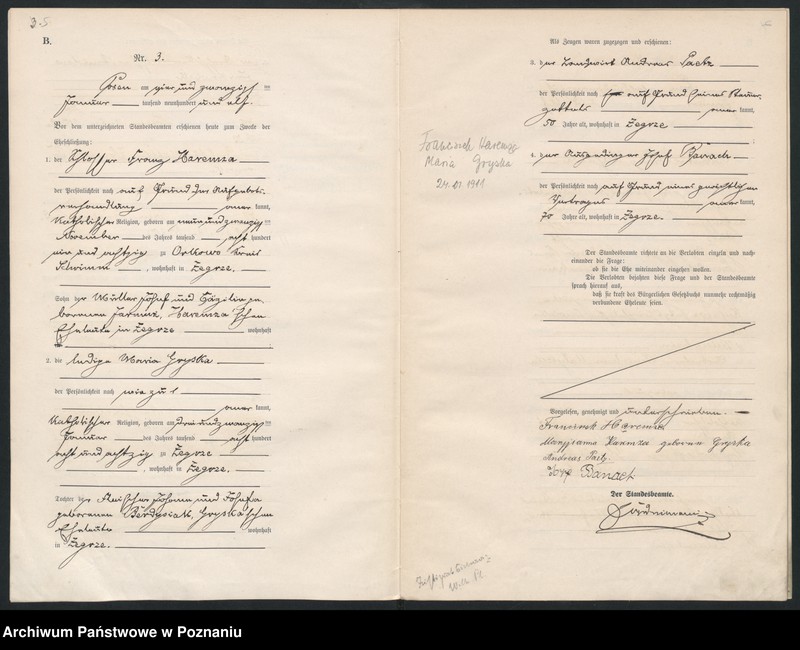 3.
B.
Nr. 3.
Posen am vier und zwanzigsten
Januar tausend neunhundert und elf.
Vor dem unterzeichneten Standesbeamten erschienen heute zum Zwecke der
Eheschließung:
1. der Schlosser Franz Haremza
der Persönlichkeit nach auf Grund der Aufgebots-
verhandlung anerkannt,
katholischer Religion, geboren am neun und zwanzigsten
November des Jahres tausend acht hundert
vier und achtzig zu Orlkowo Kreis
Schrimm, wohnhaft in Zegrze.
Sohn der Müller Josef und Cäzilia ge-
borenen Haremza'schen
Eheleute in Zegrze wohnhaft
2. die ledige Maria Gryska
der Persönlichkeit nach wie zu 1
anerkannt,
katholischer Religion, geboren am drei und zwanzigsten
Januar des Jahres tausend acht hundert
acht und achtzig zu Zegrze
, wohnhaft in Zegrze.
Tochter der Fleischer Johann und Josefa
geborenen Berdysiak, Gryska'schen
Eheleute wohnhaft
in Zegrze.
Als Zeugen waren zugezogen und erschienen:
3. der Landwirt Andreas Paetz
der Persönlichkeit nach auf Grund seines Steuer-
zettels anerkannt,
50 Jahre alt, wohnhaft in Zegrze
4. der Ausgedinger Josef Banach
der Persönlichkeit nach auf Grund eines gerichtlichen
Vertrages anerkannt,
70 Jahre alt, wohnhaft in Zegrze.
Der Standesbeamte richtete an die Verlobten einzeln und nach-
einander die Frage:
ob sie die Ehe miteinander eingehen wollen.
Die Verlobten bejahten diese Frage und der Standesbeamte
sprach hierauf aus,
daß sie kraft des Bürgerlichen Gesetzbuchs nunmehr rechtmäßig
verbundene Eheleute seien.
Vorgelesen, genehmigt und unterschrieben.
Franciszek Haremza
Maryjanna Haremza geborene Gryska
Andreas Paetz
Josef Banach
Der Standesbeamte.
Franciszek Haremza
Maria Gryska
24.01.1911
Archiwum Państwowe w Poznaniu